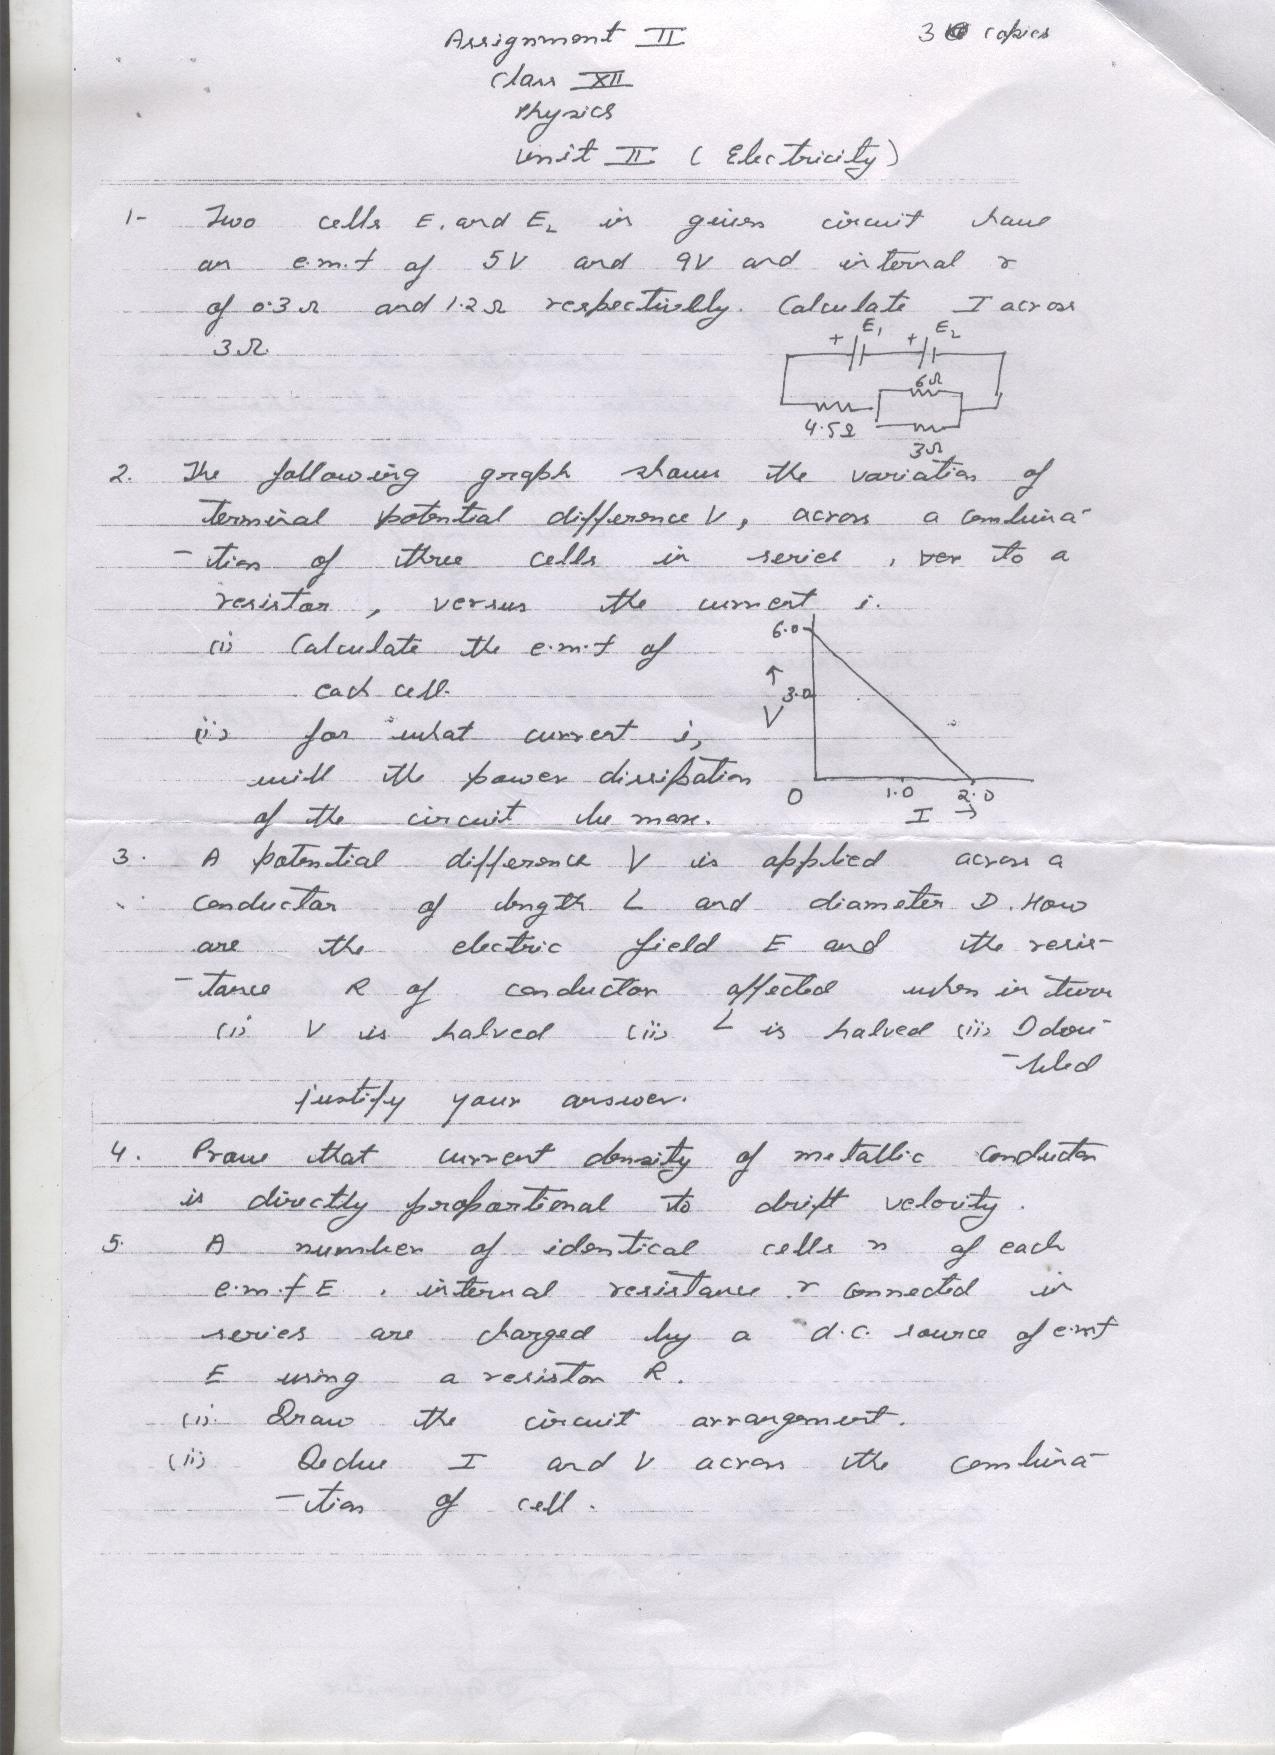 Assignment II
3 copies
Class XII
Physics
Unit II ( Electricity )
1- Two cells E1 and E2 in given circuit have
an e.m.f of 5V and 9V and internal r
of 0.3 Ω and 1.2 Ω respectively. Calculate I across
3 Ω
+ E1 + E2
6Ω
4.5Ω
3Ω
2. The following graph shows the variation of
terminal potential difference V, across a combina-
-tion of three cells in series , to a
resistor , versus the current i.
(i) Calculate the e.m.f of
each cell.
(ii) for what current i,
will the power dissipation
of the circuit be max.
6.0
3.0
↑
V
O 1.0 2.0
I →
3. A potential difference V is applied across a
conductor of length L and diameter D. How
are the electric field E and the resis-
-tance R of conductor affected when in turn
(i) V is halved (ii) L is halved (iii) D dou-
-bled
justify your answer.
4. Prove that current density of metallic conductor
is directly proportional to drift velocity .
5. A number of identical cells n of each
e.m.f E , internal resistance r connected in
series are charged by a d.c. source of emf
E using a resistor R.
(i) Draw the circuit arrangement.
(ii) Dedue I and V across the combina-
-tion of cell.